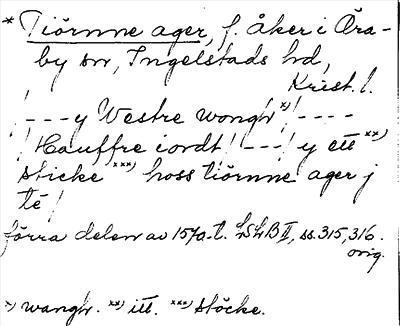 * Tiörnne ager, f. åker i Öra-
by sn, Ingelstads hd,
Krist. l.
! --- y Westre wongh x) ! ----
! Hauffre iordt ! --- ! y ett xx)
sticke xxx) hoss tiörnne ager j
té !
förra delen av 1570-t. LSLB II, ss. 315, 316.
orig.
x) wangh. xx) itt. xxx) støcke.